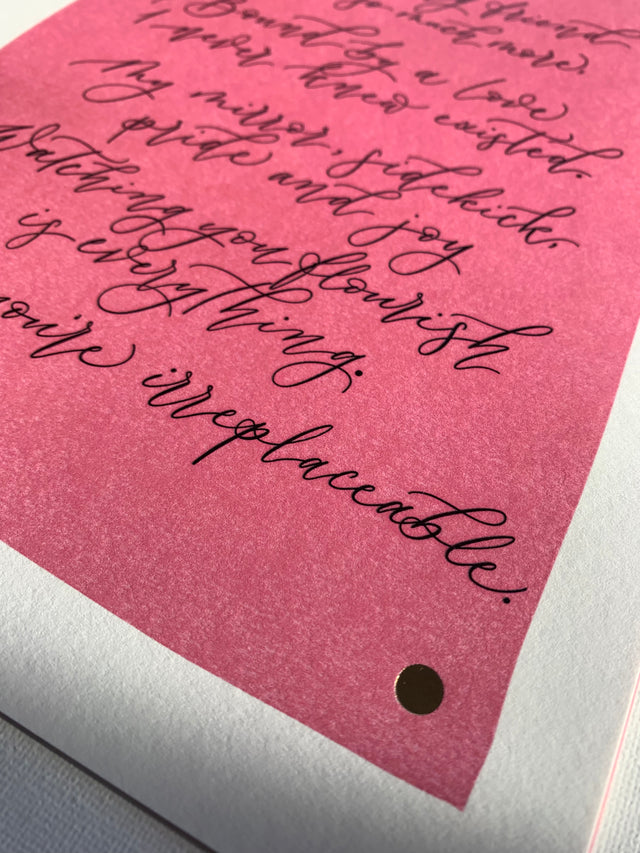 friend
so much more.
Bound by a love
I never knew existed.
My mirror, sidekick,
pride and joy
Watching you flourish
is everything.
you're irreplaceable.